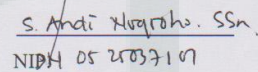 S. Andi Nugroho. SSn
NIDN 0525037107